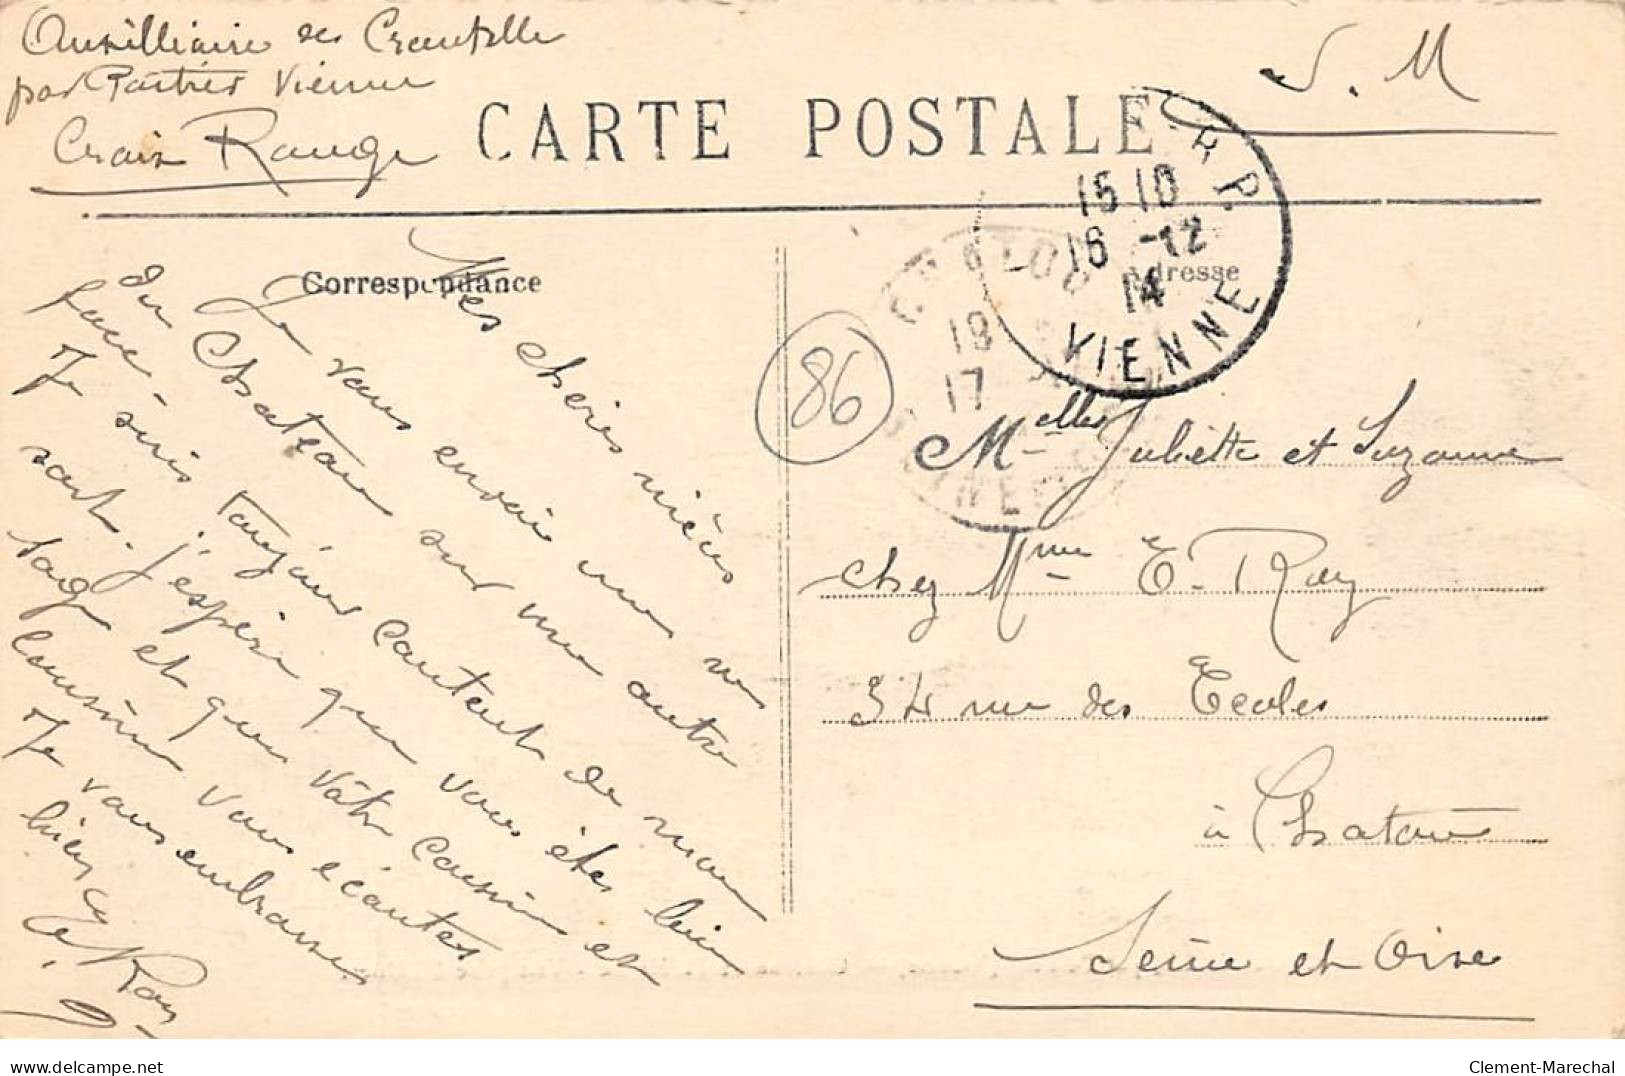 Auxilliaire de Croutelle
par Poitiers Vienne
Croix Rouge
S. M
CARTE POSTALE
Correspondance
Adresse
15 10
16 -12
14
VIENNE
CHATOU
18
17
86
Mes chères nièces
Je vous envoie une vue
du Château sur une autre
face. 
Je suis toujours content de mon
sort. j'espère que vous êtes bien
sage et que vôtre cousin et
cousine vous écoutes
Je vous embrasse
bien
E. Roy
Melles Juliette et Suzanne
chez Mme E. Roy
34 rue des Ecoles
à Chatou
Seine et Oise
Clement-Marechal